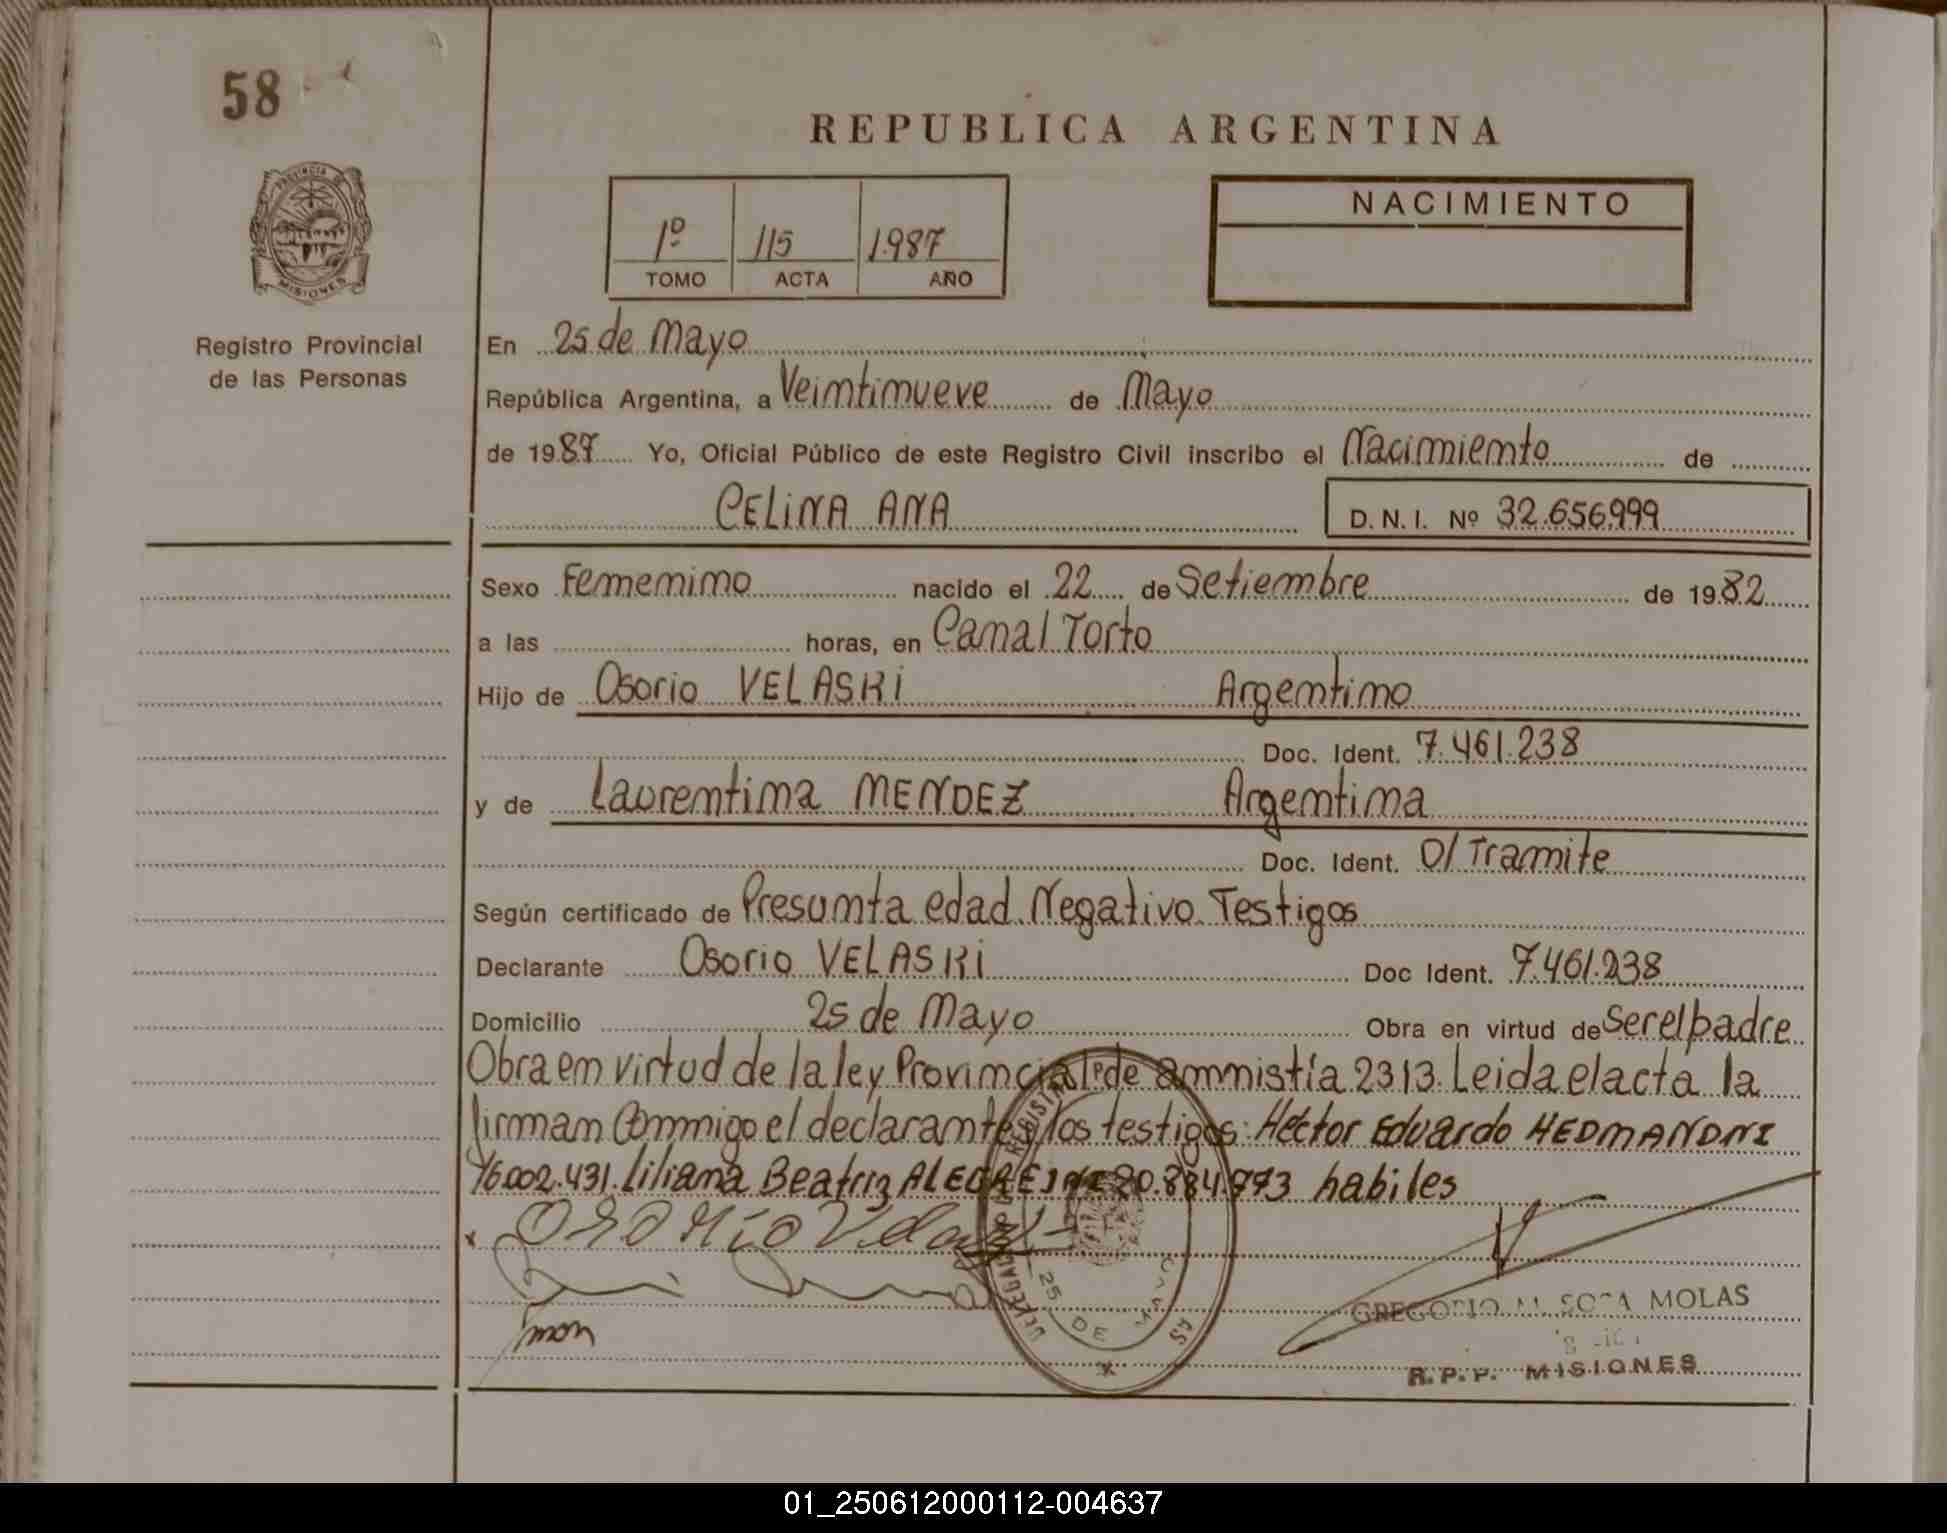 58
REPUBLICA ARGENTINA
NACIMIENTO
1º 115 1.987
TOMO ACTA AÑO
PROVINCIA DE
MISIONES
Registro Provincial
de las Personas
En 25 de Mayo
República Argentina, a Veintinueve de Mayo
de 1987 Yo, Oficial Público de este Registro Civil inscribo el Nacimiento de
CELINA ANA D.N.I. Nº 32.656.999
Sexo Femenino nacido el 22 de Setiembre de 1982
a las horas, en Canal Torto
Hijo de Osorio VELASKI Argentino
Doc. Ident. 7.461.238
y de Laurentina MENDEZ Argentina
Doc. Ident. O/Tramite
Según certificado de Presunta edad Negativo Testigos
Declarante Osorio VELASKI Doc Ident. 7.461.238
Domicilio 25 de Mayo Obra en virtud de Ser el padre
Obra en virtud de la ley Provincial de amnistía 2313. Leida el acta la
firman Conmigo el declarante y los testigos: Héctor Eduardo
16.002.431. Liliana Beatriz ALEGRE habiles
Osorio
25 DE MAYO
GREGORIO M. SOSA MOLAS
R.P.P. MISIONES
01_250612000112-004637